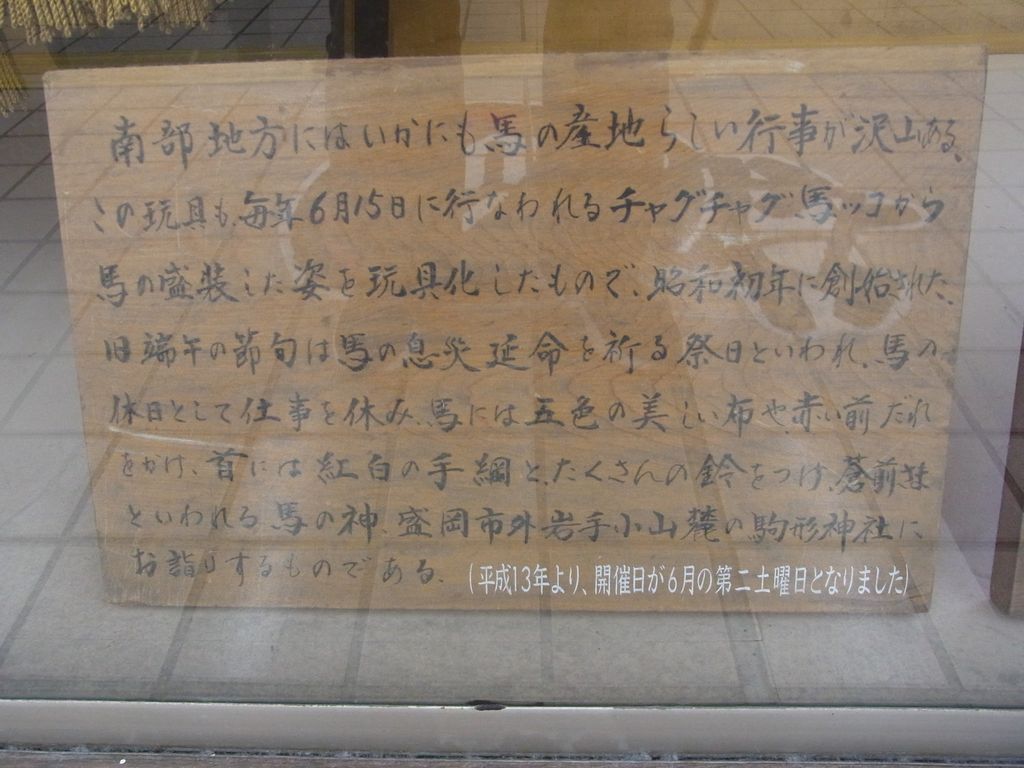 南部地方にはいかにも馬の産地らしい行事が沢山ある、
この玩具も、毎年6月15日に行なわれるチャグチャグ馬ッコから
馬の盛装した姿を玩具化したもので、昭和初年に創始された、
旧端午の節句は馬の息災延命を祈る祭日といわれ、馬の
休日として仕事を休み、馬には五色の美しい布や、赤い前だれ
をかけ、首には紅白の手綱と、たくさんの鈴をつけ、蒼前様
といわれる馬の神、盛岡市外岩手小山麓の駒形神社に
お詣りするものである。
(平成13年より、開催日が6月の第二土曜日となりました)